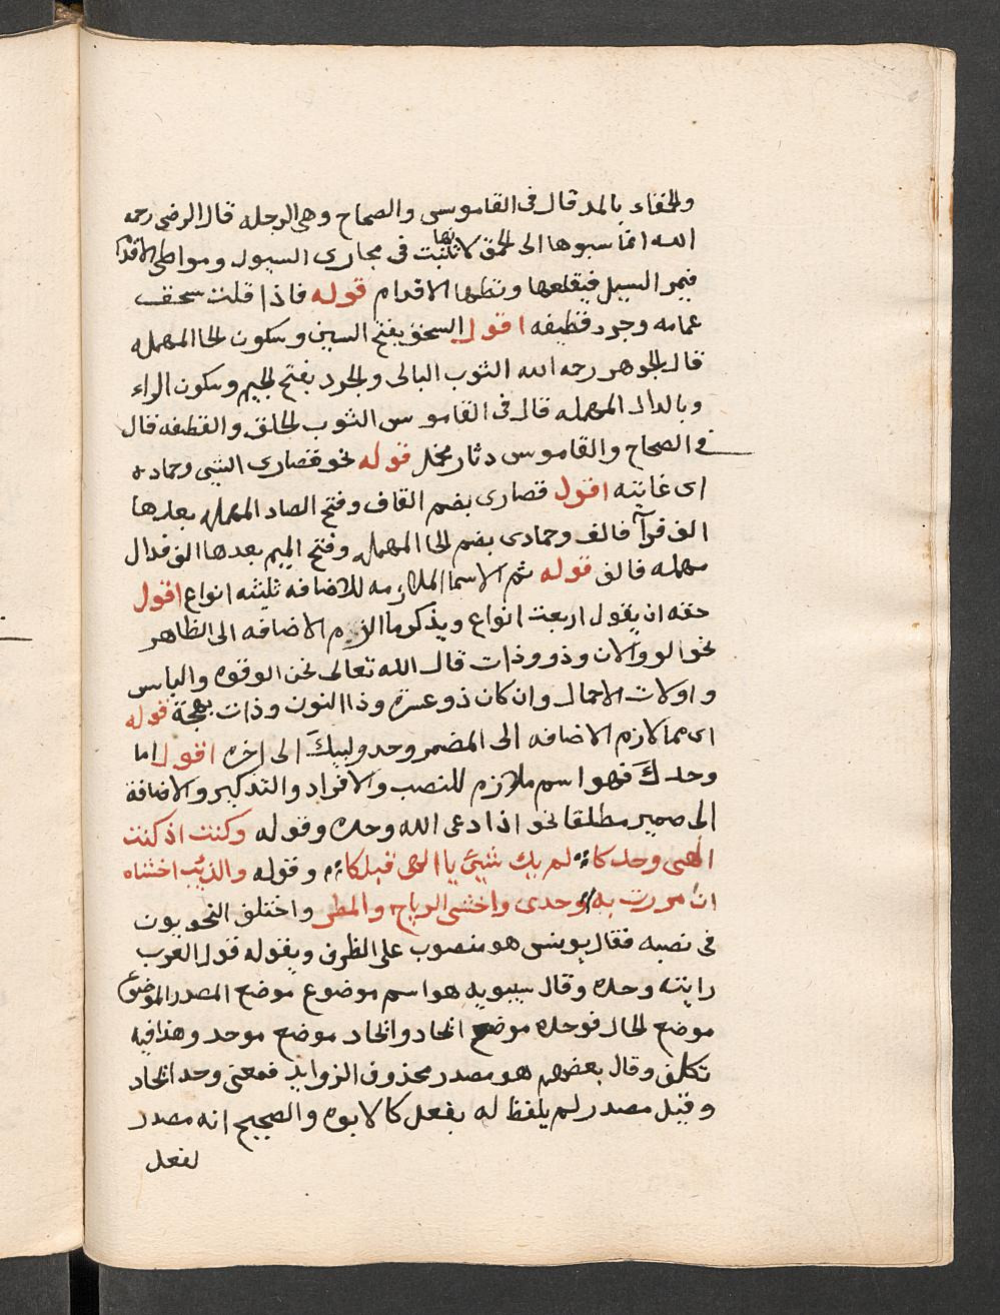 والحقاء بالمد قال فى القاموس والصحاح وهى الرجله قال الرضى رحمه
الله انما سبوها الى الحمق لانها تنبت فى مجارى السيول ومواطى الاقدام
فيمر السيل فيقلعها وتطها الاقدام قوله فاذا قلت سحق
عمامه وجرد قطيفه اقول السحق بفتح السين وسكون الحا المهمله
قال الجوهر رحه الله الثوب البالى والجرد بفتح الجيم وسكون الراء
وبالدال المهمله قال فى القاموس الثوب الخلق والقطيفه قال
فى الصحاح والقاموس دثار مخمل قوله نحو قصارى الشى وحماده
اى غايته اقول قصارى بضم القاف وفتح الصاد المهمله بعدها
الف فرآ فالف وحمادى بضم الحا المهمله وفتح الميم بعدها الف فدال
مهمله فالف قوله ثم الاسما الملازمه للاضافه ثلثه انواع اقول
حقه ان يقول اربعت انواع ويذكر ما الزم الاضافه الى الظاهر
نحو الو والات وذو وذات قال الله تعالى نحن الو قوه والو باس
واولات الاحمال وان كان ذو عسره وذا النون وذات بهجة قوله
اى مما لازم الاضافه الى المضمر وحد ولبيك الى اخره اقول اما
وحدك فهو اسم ملازم للنصب والافراد والتذكير والاضافة
الى ضمير مطلقا نحو اذا دعى الله وحده وقوله وكنت اذ كنت
الهى وحدكا لم يك شيئ يا الهى قبلكا وقوله والذيب اخشاه
ان مررت به وحدى واخشى الرياح والمطر واختلف النحويون
فى نصبه فقال يونس هو منصوب على الظرف وبقوله قول العرب
رايته وحده وقال سيبويه هو اسم موضوع موضع المصدر الموضوع
موضع الحال فوحده موضع اتحاد واتحاد موضع موحد وهذا فيه
تكلف وقال بعضهم هو مصدر محذوف الزوايد فمعنى وحد اتحاد
وقيل مصدر لم يلفظ له بفعل كالابوه والصحيح انه مصدر
لفعل